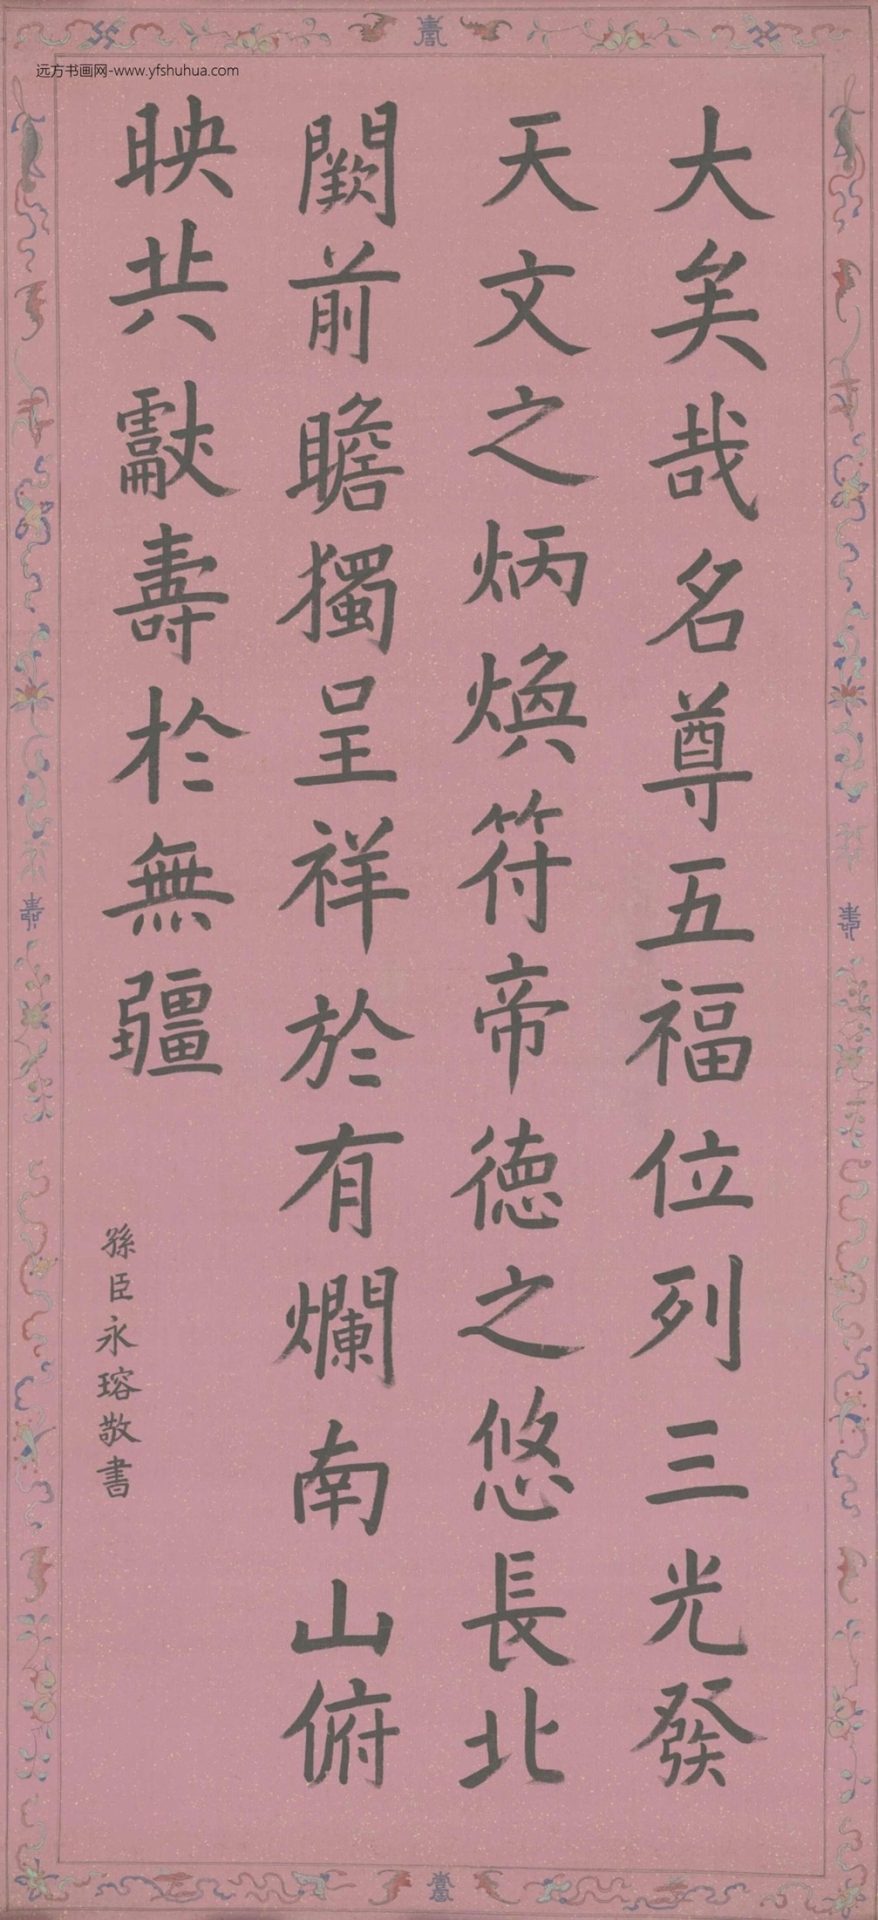 远方书画网-www.yfshuhua.com
大矣哉名尊五福位列三光發
天文之炳煥符帝德之悠長北
闕前瞻獨呈祥於有爛南山俯
映共獻壽於無疆
孫臣永瑢敬書